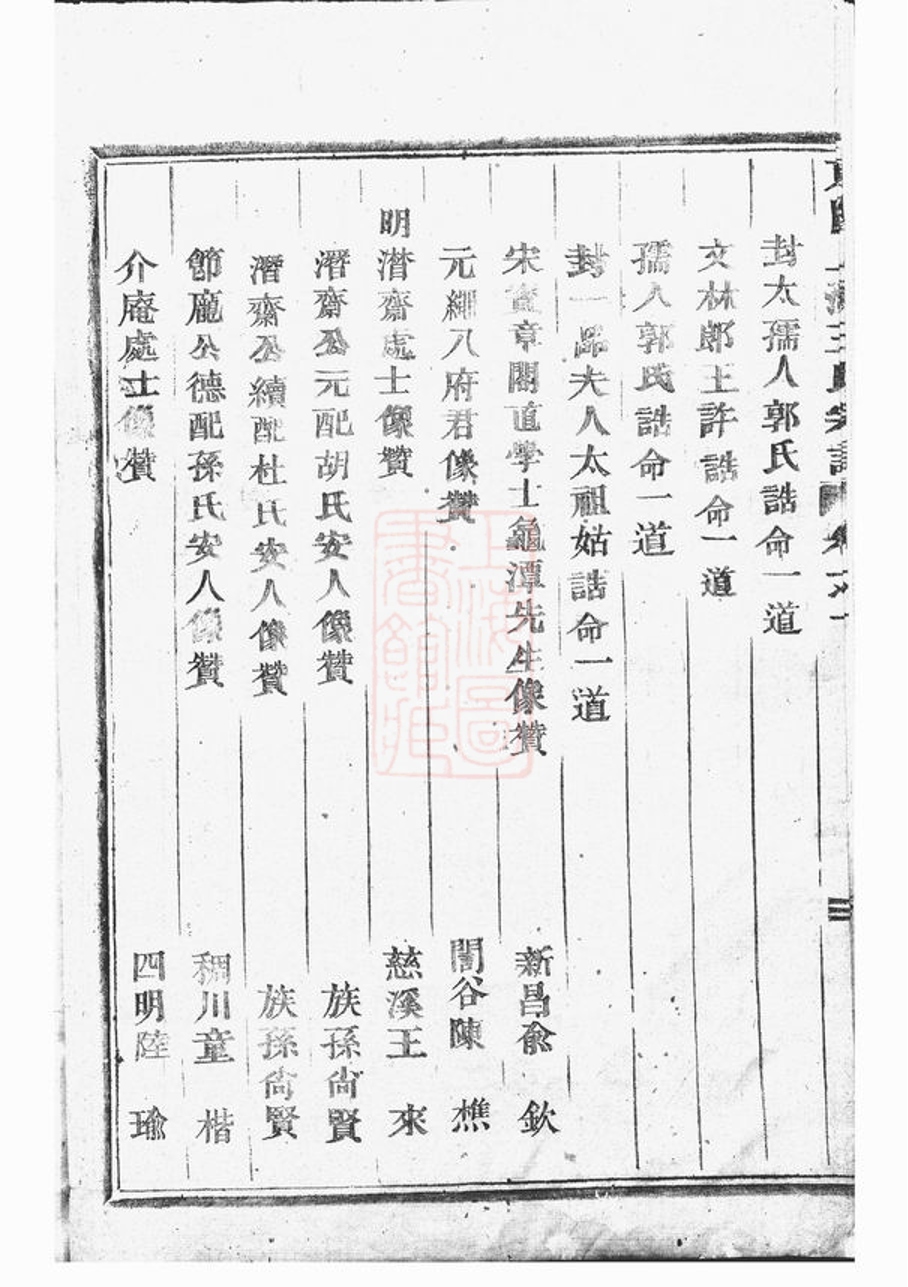 封太孺人郭氏誥命一道
文林郎王許誥命一道
孺人郭氏誥命一道
封一品夫人太祖姑誥命一道
宋寶章閣直學士龜潭先生像贊 新昌俞 欽
元綱八府君像贊 誾谷陳 樵
明潛齋處士像贊 慈溪王 來
潛齋公元配胡氏安人像贊 族孫尚賢
潛齋公續配杜氏安人像贊 族孫尚賢
節龐公德配孫氏安人像贊 稠川童 楷
介庵處士像贊 四明陸 瑜
上海圖書館藏